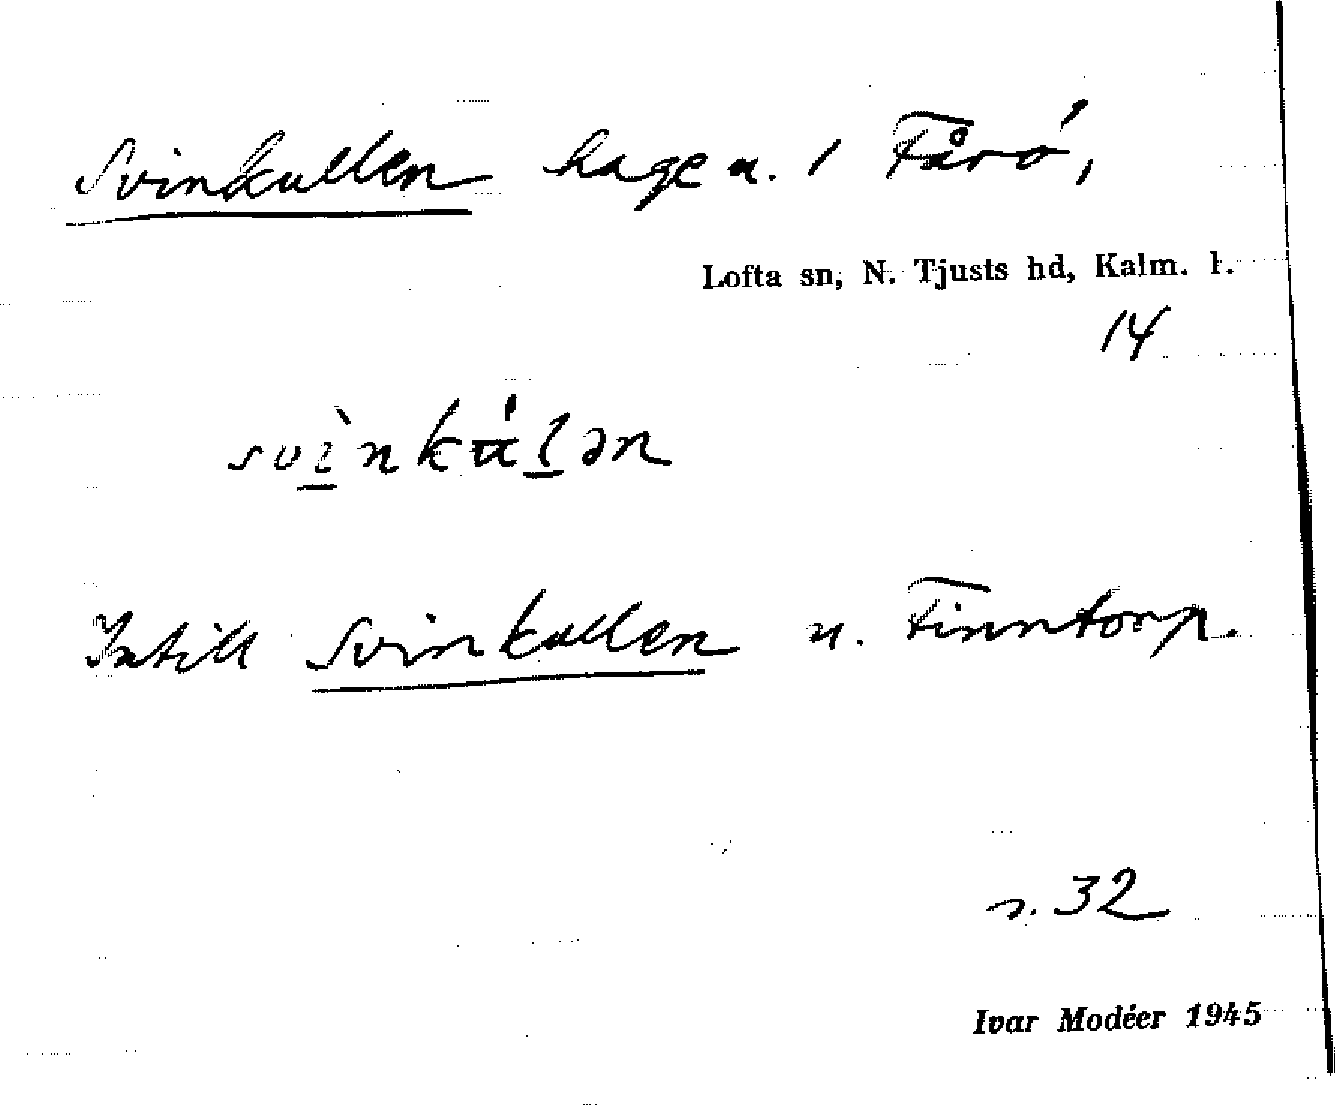 Svinkullen hage u. 1 Fårö,
Lofta sn, N. Tjusts hd, Kalm. l.
14
svìnkúlən
Intill Svinkullen u. Finntorp.
s. 32
Ivar Modéer 1945